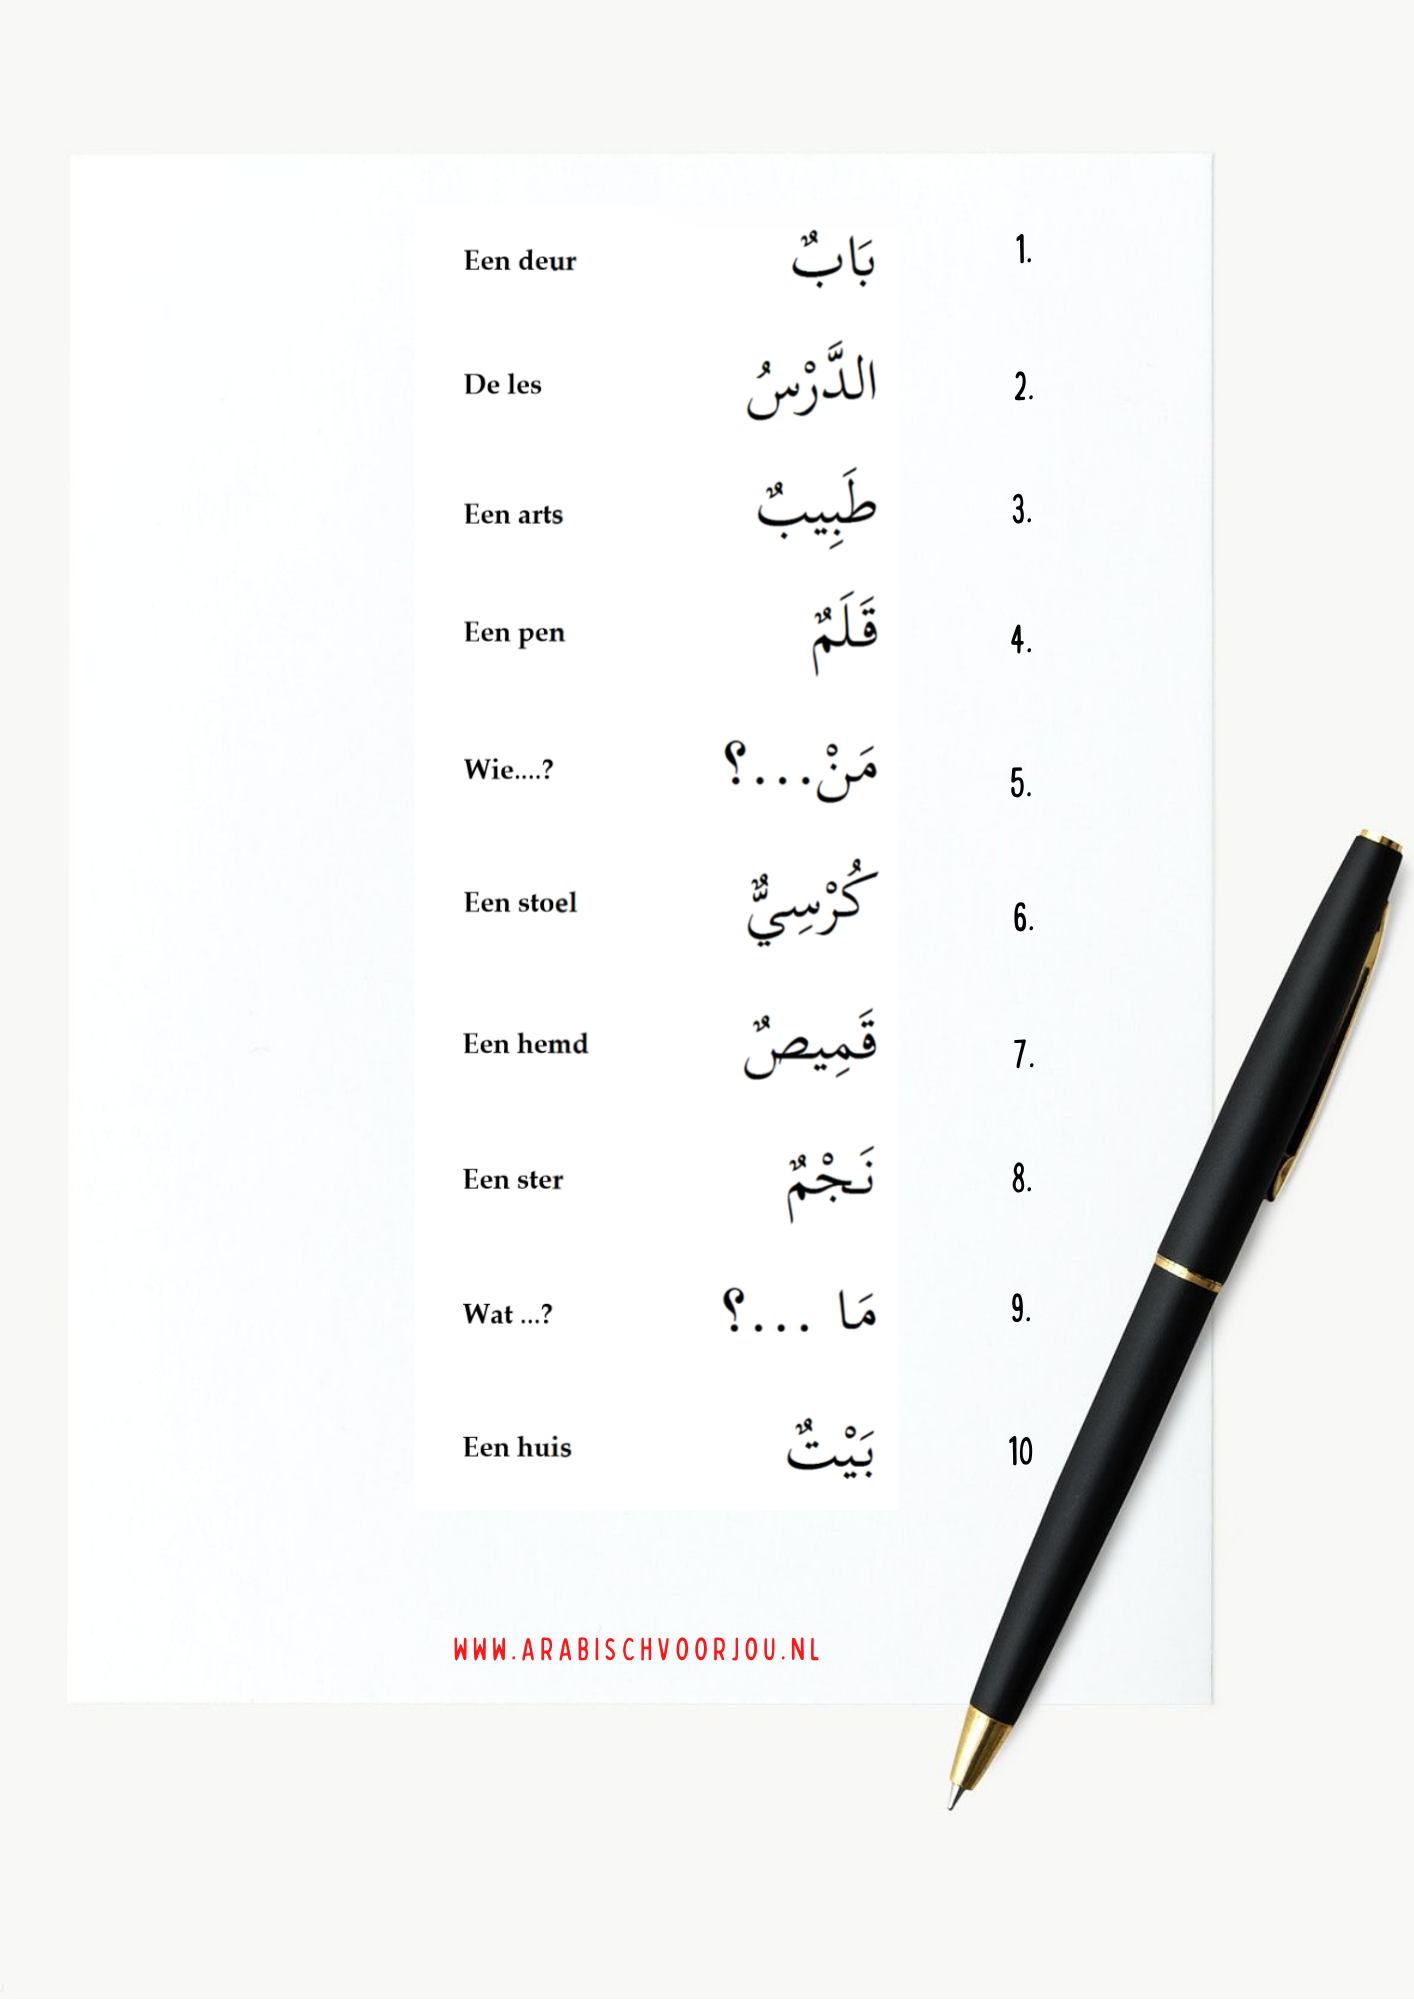 1. بَابٌ Een deur
2. الدَّرْسُ De les
3. طَبِيبٌ Een arts
4. قَلَمٌ Een pen
5. مَنْ...؟ Wie....?
6. كُرْسِيٌّ Een stoel
7. قَمِيصٌ Een hemd
8. نَجْمٌ Een ster
9. مَا ...؟ Wat ...?
10 بَيْتٌ Een huis
WWW.ARABISCHVOORJOU.NL